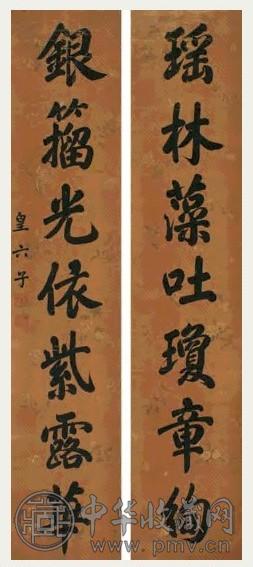 瑶林藻吐瓊章絢
銀籀光依紫露華
皇六子
中华收藏网
www.pmv.cn